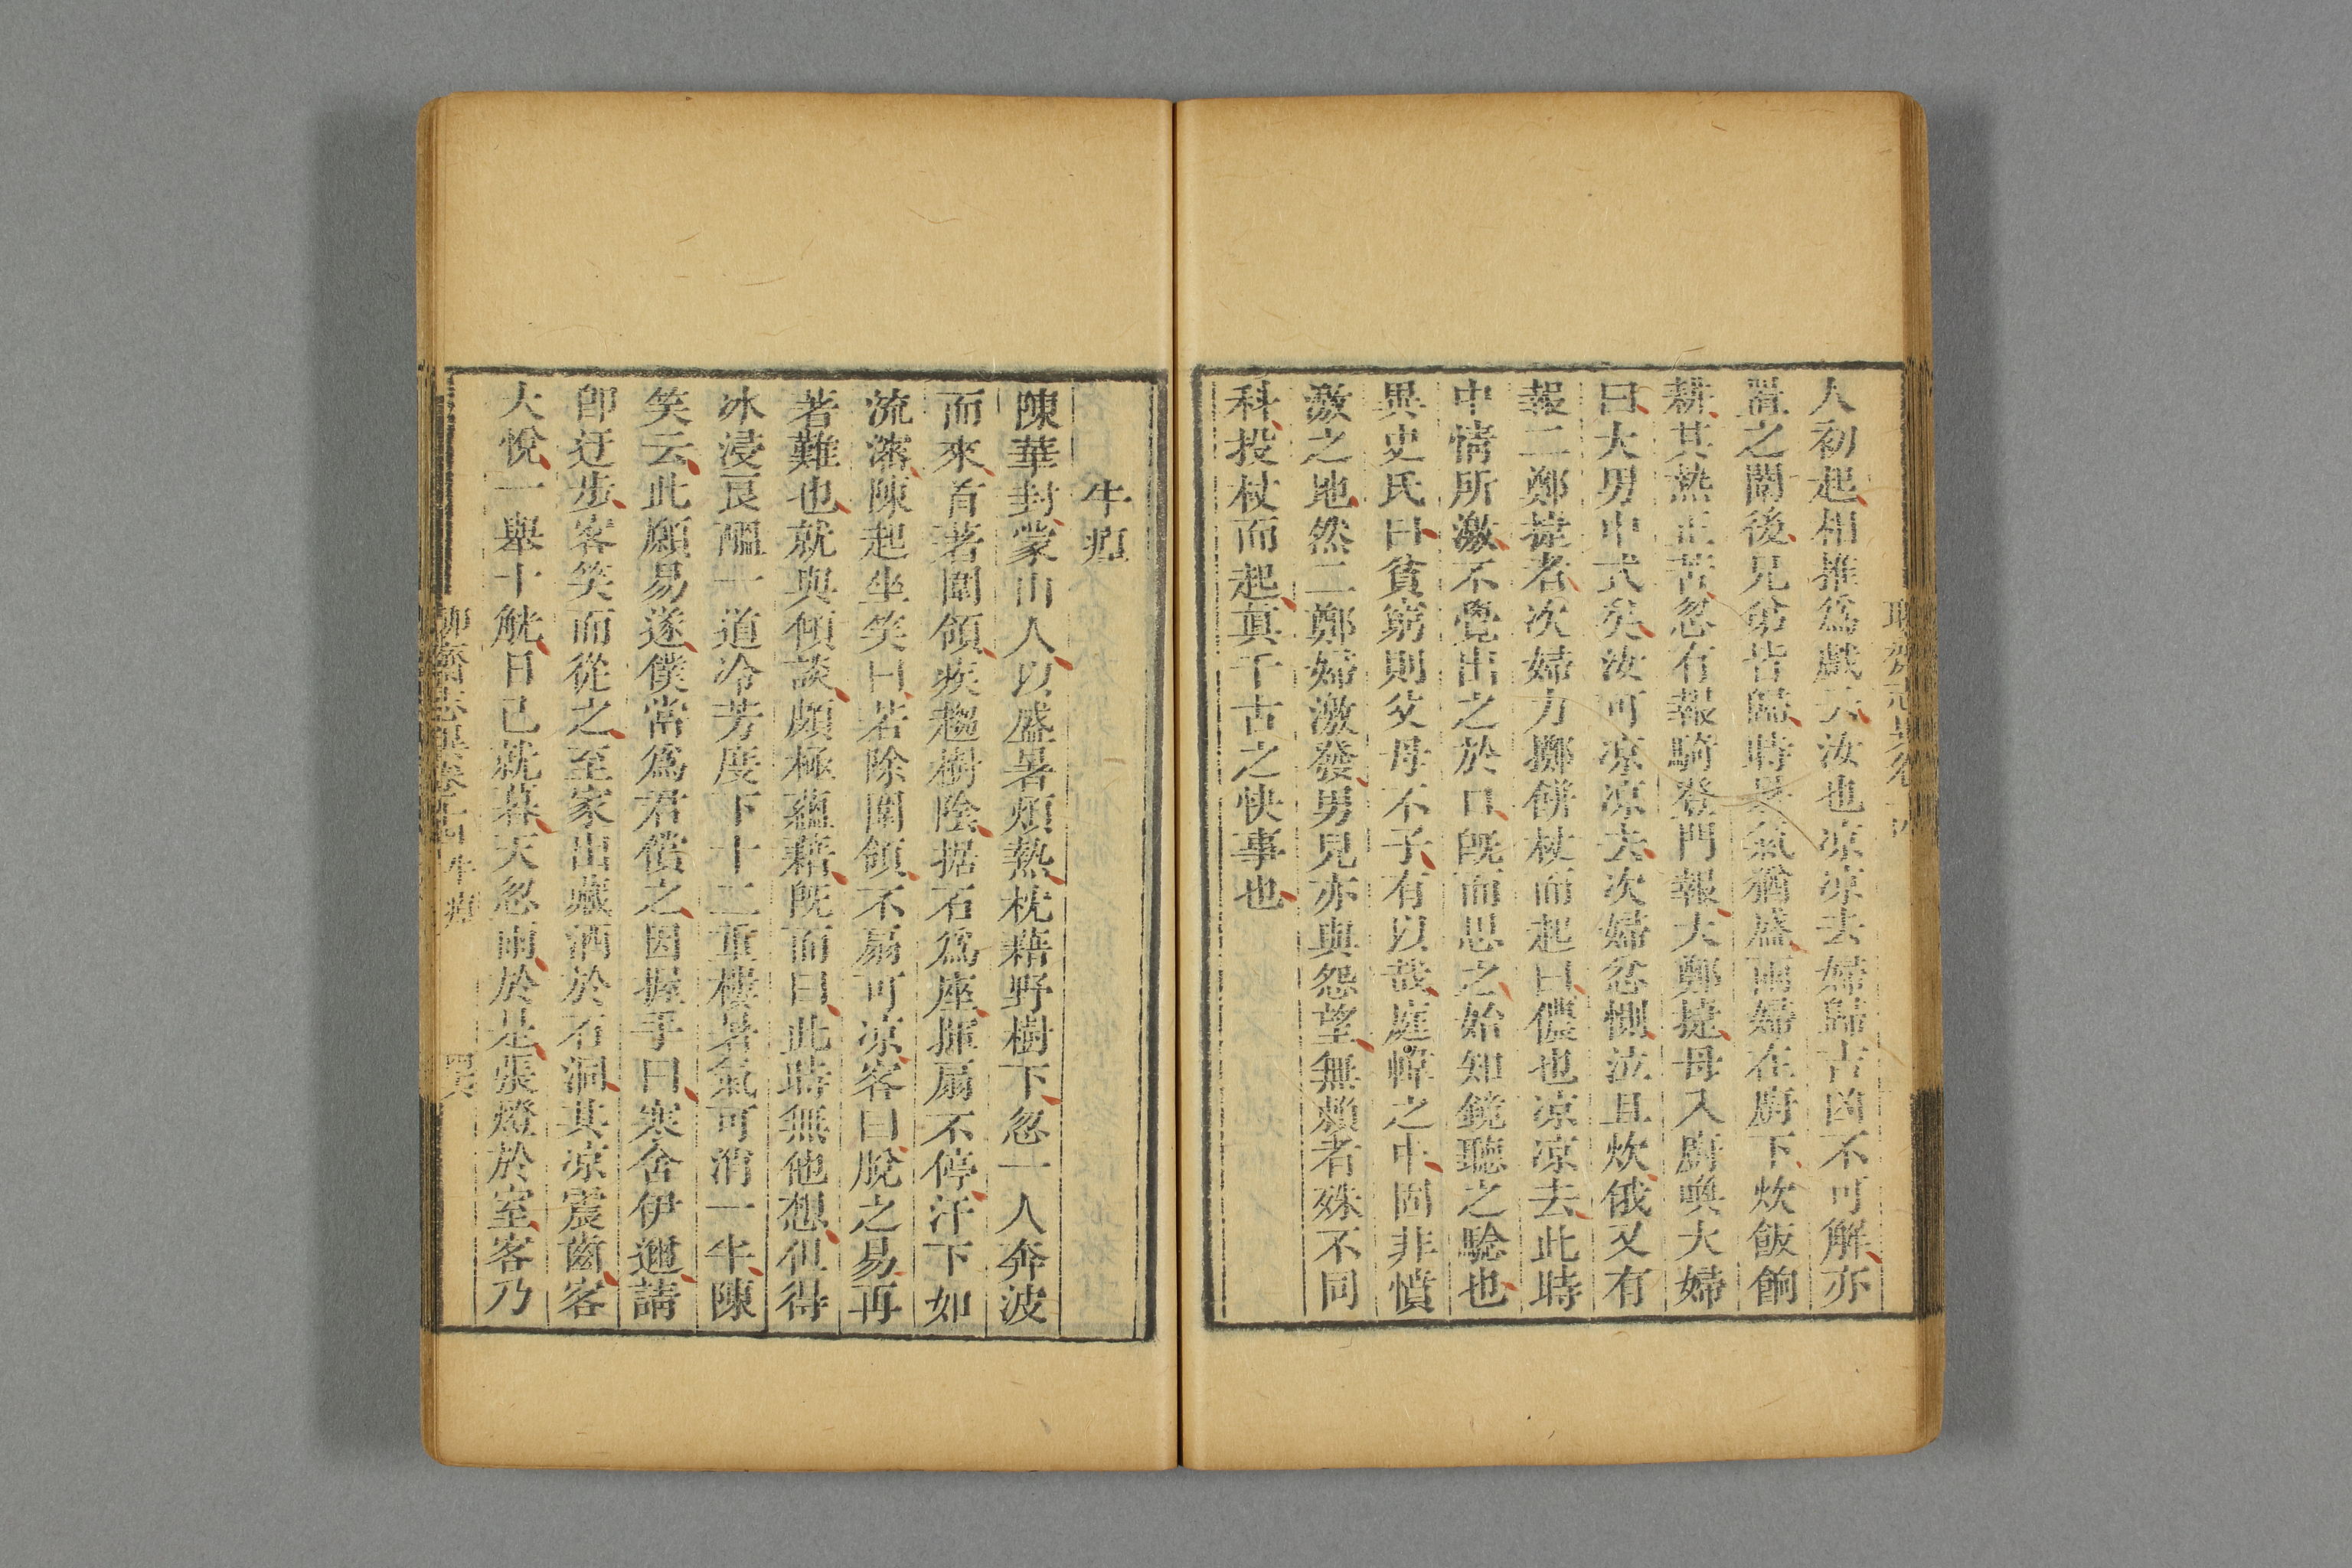 人初起相推爲戲云汝也凉凉去婦歸吉凶不可解亦
置之闈後兄弟皆歸時暑氣猶盛兩婦在廚下炊飯餉
耕其熱正苦忽有報騎登門報大鄭捷母入廚喚大婦
曰大男中式矣汝可凉凉去次婦忿惻泣且炊俄又有
報二鄭捷者次婦力擲餅杖而起曰儂也凉凉去此時
中情所激不覺出之於口旣而思之始知鏡聽之騐也
異史氏曰貧窮則父母不子有以哉庭幃之中固非憤
激之地然二鄭婦激發男兒亦與怨望無頼者殊不同
科投杖而起眞千古之快事也
牛𤶊
陳華封蒙山人以盛暑煩熱枕藉野樹下忽一人奔波
而來首著圍領疾趨樹陰掬石爲座揮扇不停汗下如
流瀋陳起坐笑曰若除圍領不扇可凉客曰脫之易再
著難也就與傾談頗極蘊藉旣而曰此時無他想但得
冰浸良醞一道冷芳度下十二重樓暑氣可消一半陳
笑云此願易遂僕當爲君償之因握手曰寒舍伊邇請
卽迂步客笑而從之至家出藏酒於石洞其凉震齒客
大悅一舉十觥日已就暮天忽雨於是張燈於室客乃